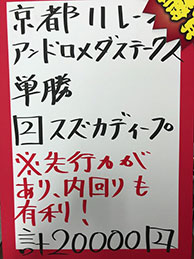 京都11レース
アンドロメダステークス
単勝
2 スズカディープ
※先行力が
あり、内回りも
有利！
計20000円